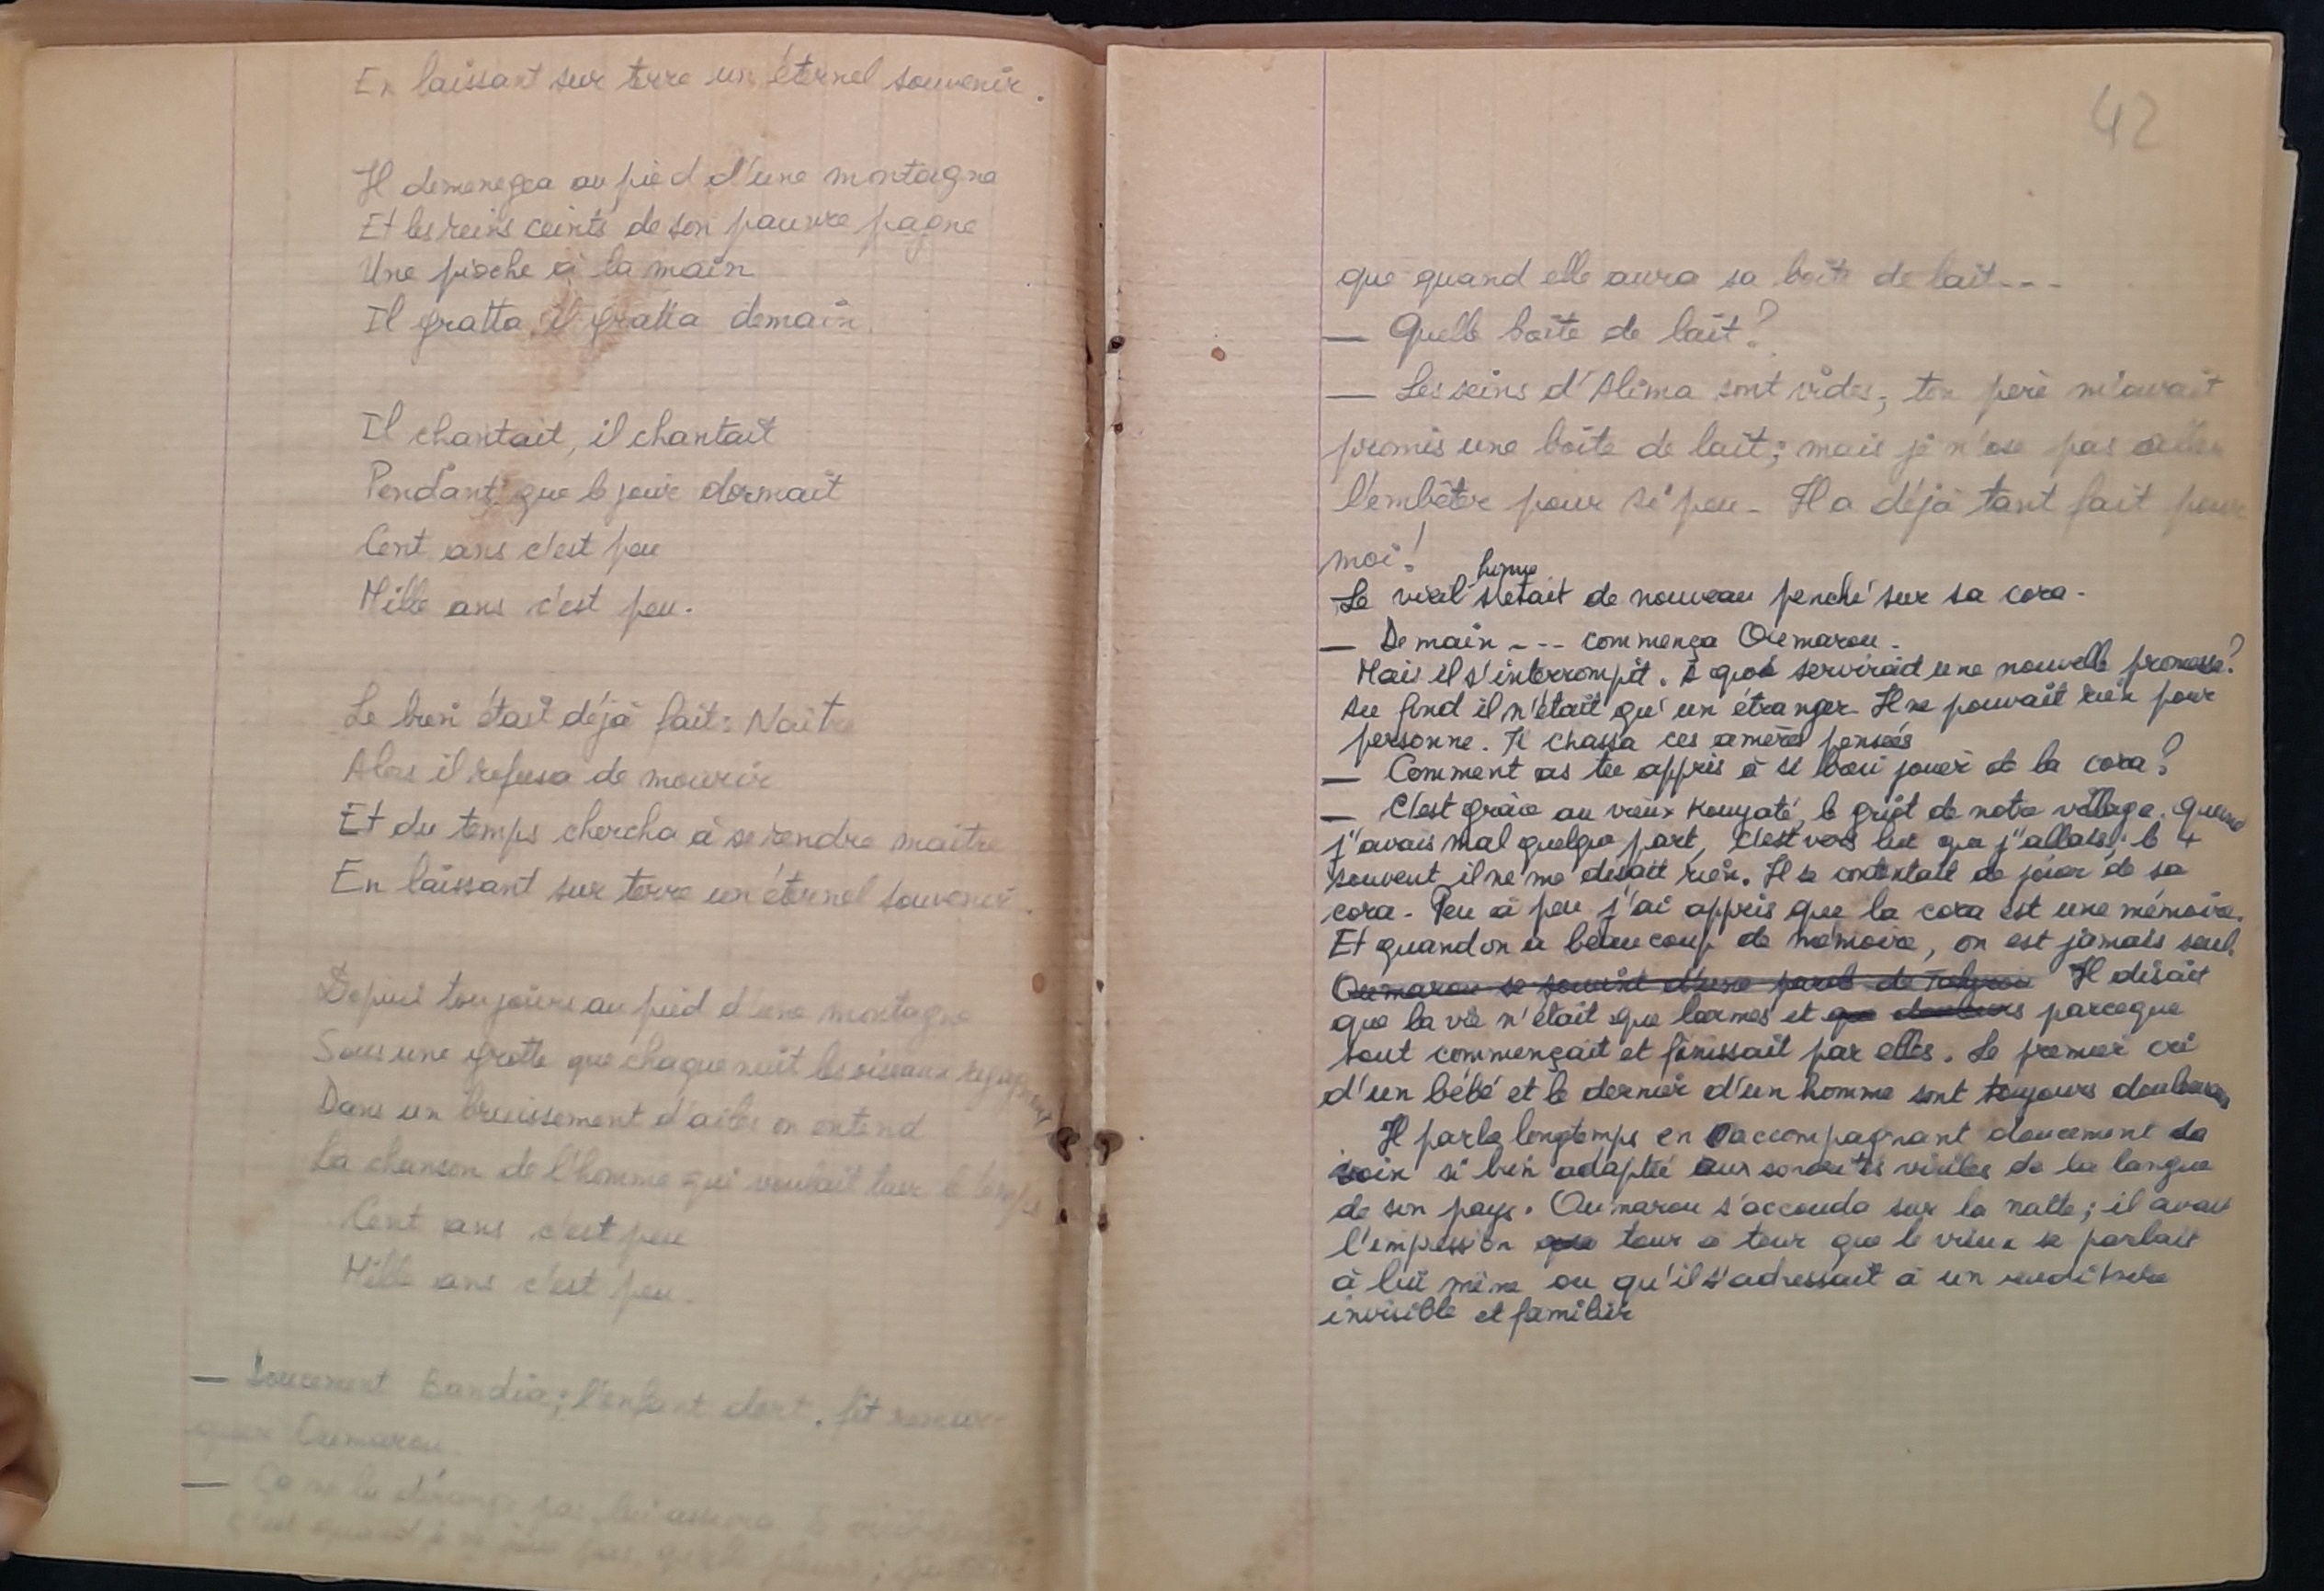 En laissant sur terre un éternel souvenir.
Il demenegea au pied d'une montagne
Et les reins ceints de son pauvre pagne
Une pioche à la main
Il gratta, il gratta demain.
Il chantait, il chantait
Pendant que le jour dormait
Cent ans c'est peu
Mille ans c'est peu.
Le bien était déjà fait: Naître
Alors il refusa de mourir
Et du temps chercha à se rendre maître
En laissant sur terre un éternel souvenir.
Depuis toujours au pied d'une montagne
Sous une grotte que chaque nuit les oiseaux
Dans un bruissement d'ailes on entend
La chanson de l'homme qui voulait tuer le temps
Cent ans c'est peu
Mille ans c'est peu.
— Doucement Bandia; l'enfant dort, fit remar-
quer Oumarou.
— Ça ne la dérange pas lui assura le
c'est quand je ne joue pas qu'elle pleure;
42
que quand elle aura sa boîte de lait---
— Quelle boîte de lait?
— Les seins d'Alima sont vides; ton père m'avait
promis une boîte de lait; mais je n'ose pas aller
l'embêter pour si peu. Il a déjà tant fait pour
moi!
Le vieil homme s'était de nouveau penché sur sa cora.
— Demain --- commença Oumarou.
Mais il s'interrompit. A quoi servirait une nouvelle promesse?
Au fond il n'était qu'un étranger. Il ne pouvait rien pour
personne. Il chassa ces amères pensées
— Comment as tu appris à si bien jouer de la cora?
— C'est grâce au vieux Kouyaté, le griot de notre village. Quand
j'avais mal quelque part, c'est vers lui que j'allais; le + 
souvent il ne me disait rien. Il se contentait de jouer de sa
cora. Peu à peu j'ai appris que la cora est une mémoire.
Et quand on a beaucoup de mémoire, on est jamais seul.
Oumarou se souvint d'une parole de Il disait
que la vie n'était que larmes et que douleurs parceque
tout commençait et finissait par elles. Le premier cri
d'un bébé et le dernier d'un homme sont toujours douloureux
Il parla longtemps en accompagnant doucement sa
voix si bien adaptée aux sonorités viriles de la langue
de son pays. Oumarou s'accouda sur la natte; il avait
l'impression que tour à tour que le vieux se parlait
à lui même ou qu'il s'adressait à un auditoire
invisible et familier